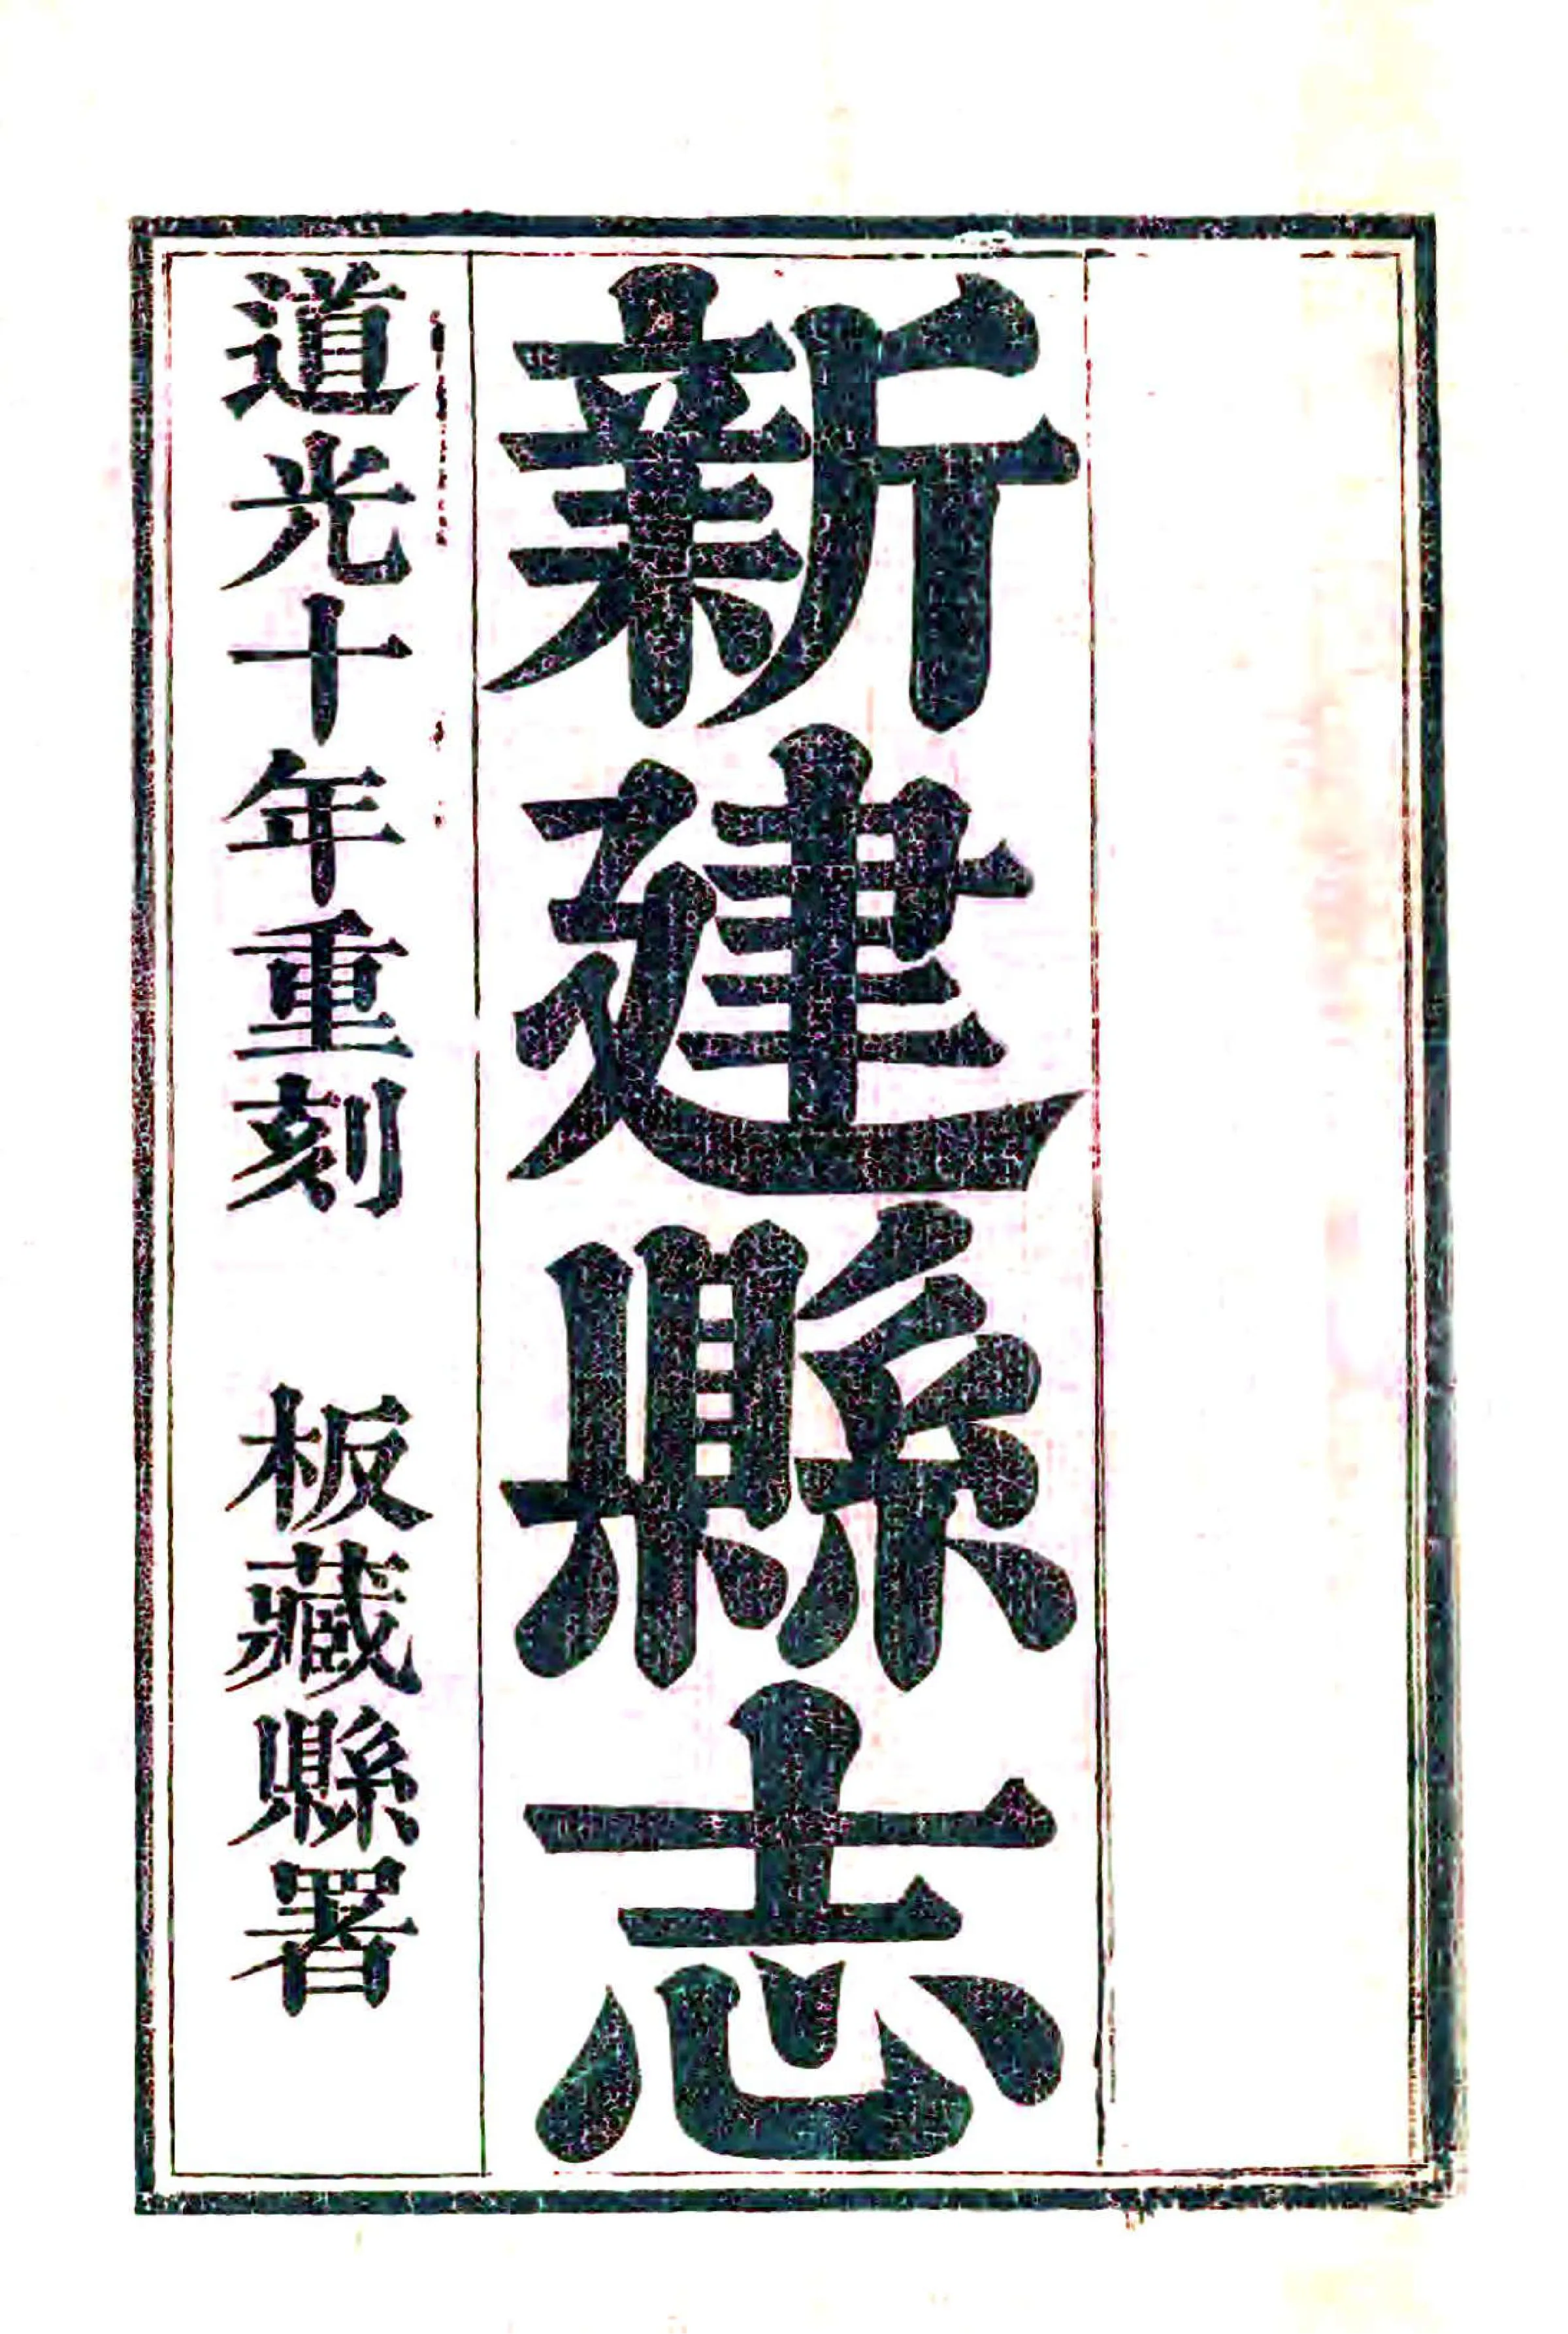 新建縣志
道光十年重刻　板藏縣署